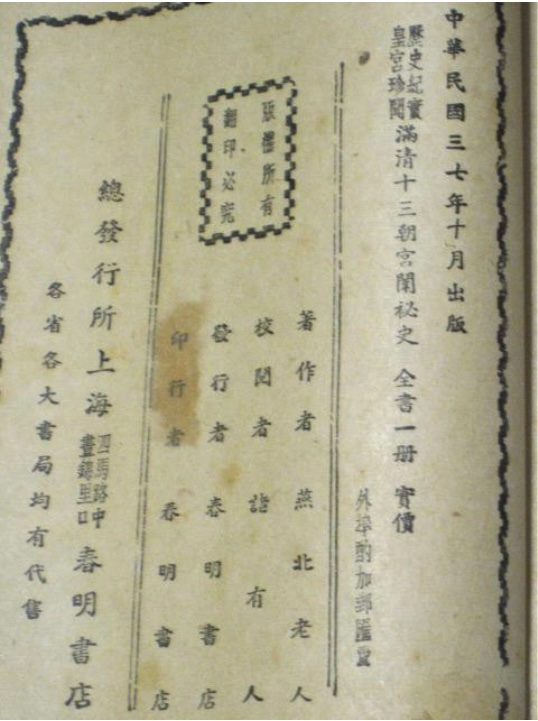 中華民國三七年十月出版
歷史紀實
皇宮珍聞
滿清十三朝宮闈祕史 全書一册 實價
外埠酌加郵匯費
版權所有
翻印必究
著作者 燕北老人
校閱者 諸有人
發行者 春明書店
印行者 春明書店
總發行所上海
四馬路中
晝錦里口
春明書店
各省各大書局均有代售